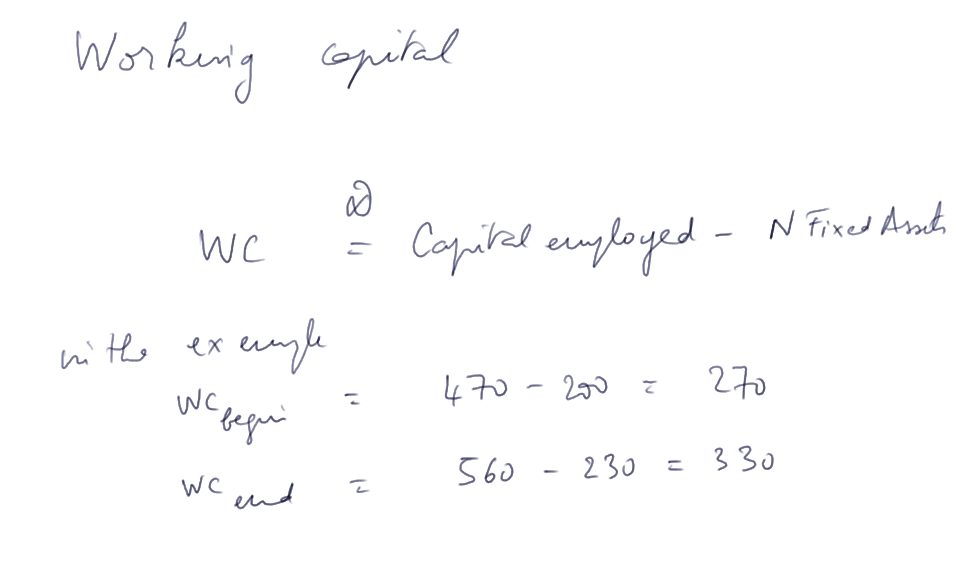 Working capital
②
WC = Capital employed - N Fixed Assets
in the example
WC begin = 470 - 200 = 270
WC end = 560 - 230 = 330